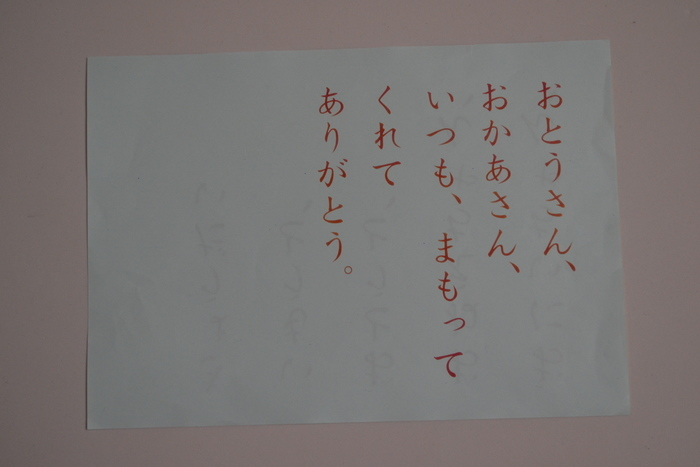 おとうさん、
おかあさん、
いつも、まもって
くれて
ありがとう。